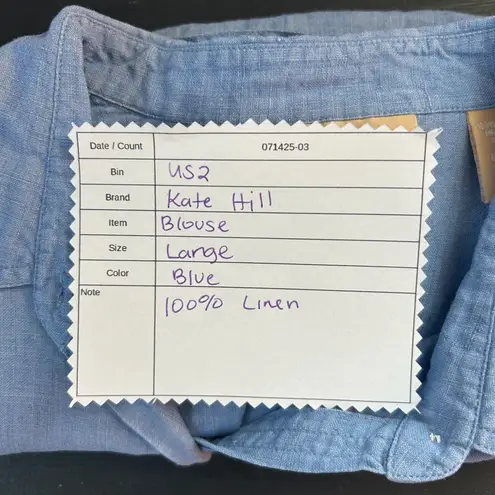 Date / Count 071425-03
Bin US2
Brand Kate Hill
Item Blouse
Size Large
Color Blue
Note 100% Linen